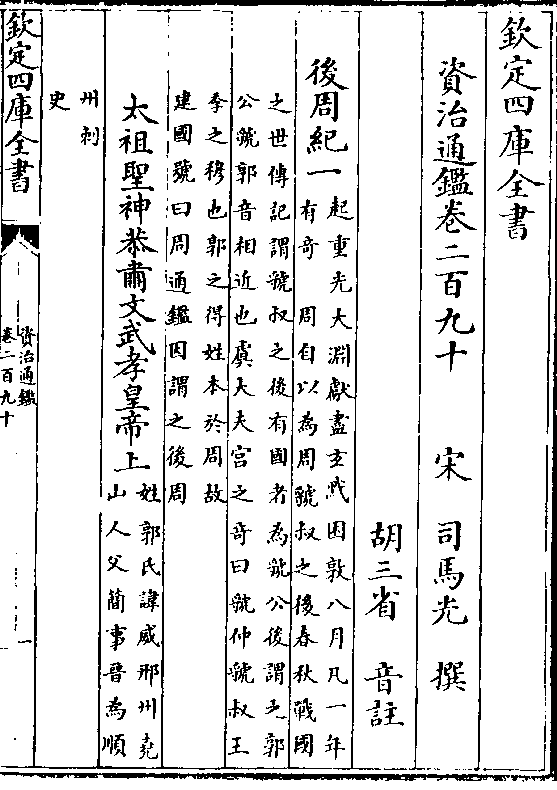 欽定四庫全書
資治通鑑卷二百九十 宋 司馬光 撰
胡三省 音註
後周紀一
起重光大淵獻盡玄黓困敦八月凡一年
有奇 周自以為周虢叔之後春秋戰國
之世傳記謂虢叔之後有國者為虢公後謂之郭
公虢郭音相近也虞大夫宫之奇曰虢仲虢叔王
季之穆也郭之得姓本於周故
建國號曰周通鑑因謂之後周
太祖聖神恭肅文武孝皇帝上
姓郭氏諱威邢州堯
山人父簡事晉為順
州刺
史
欽定四庫全書
資治通鑑
卷二百九十
一